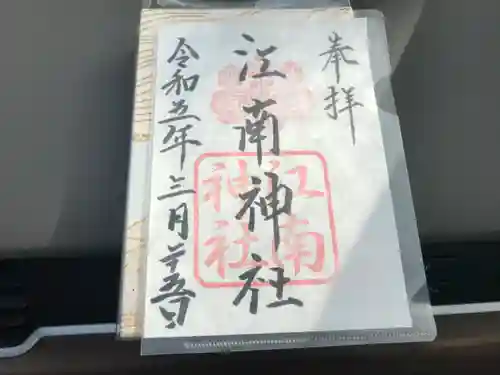 奉拝
江南神社
江南
神社
令和五年三月廿五日